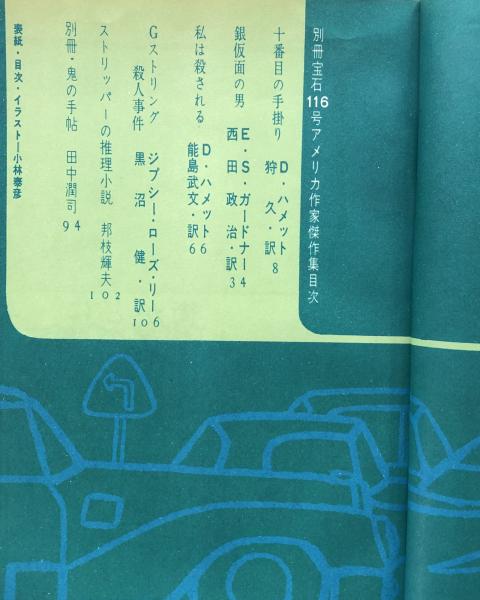 別冊宝石116号アメリカ作家傑作集目次
十番目の手掛り
D・ハメット
狩 久・訳 8
銀仮面の男
E・S・ガードナー
西田政治・訳 34
私は殺される
D・ハメット
能島武文・訳 66
Gストリング殺人事件
ジプシー・ローズ・リー
黒沼 健・訳 106
ストリッパーの推理小説 邦枝輝夫 102
別冊・鬼の手帖 田中潤司 94
表紙・目次・イラスト―小林泰彦